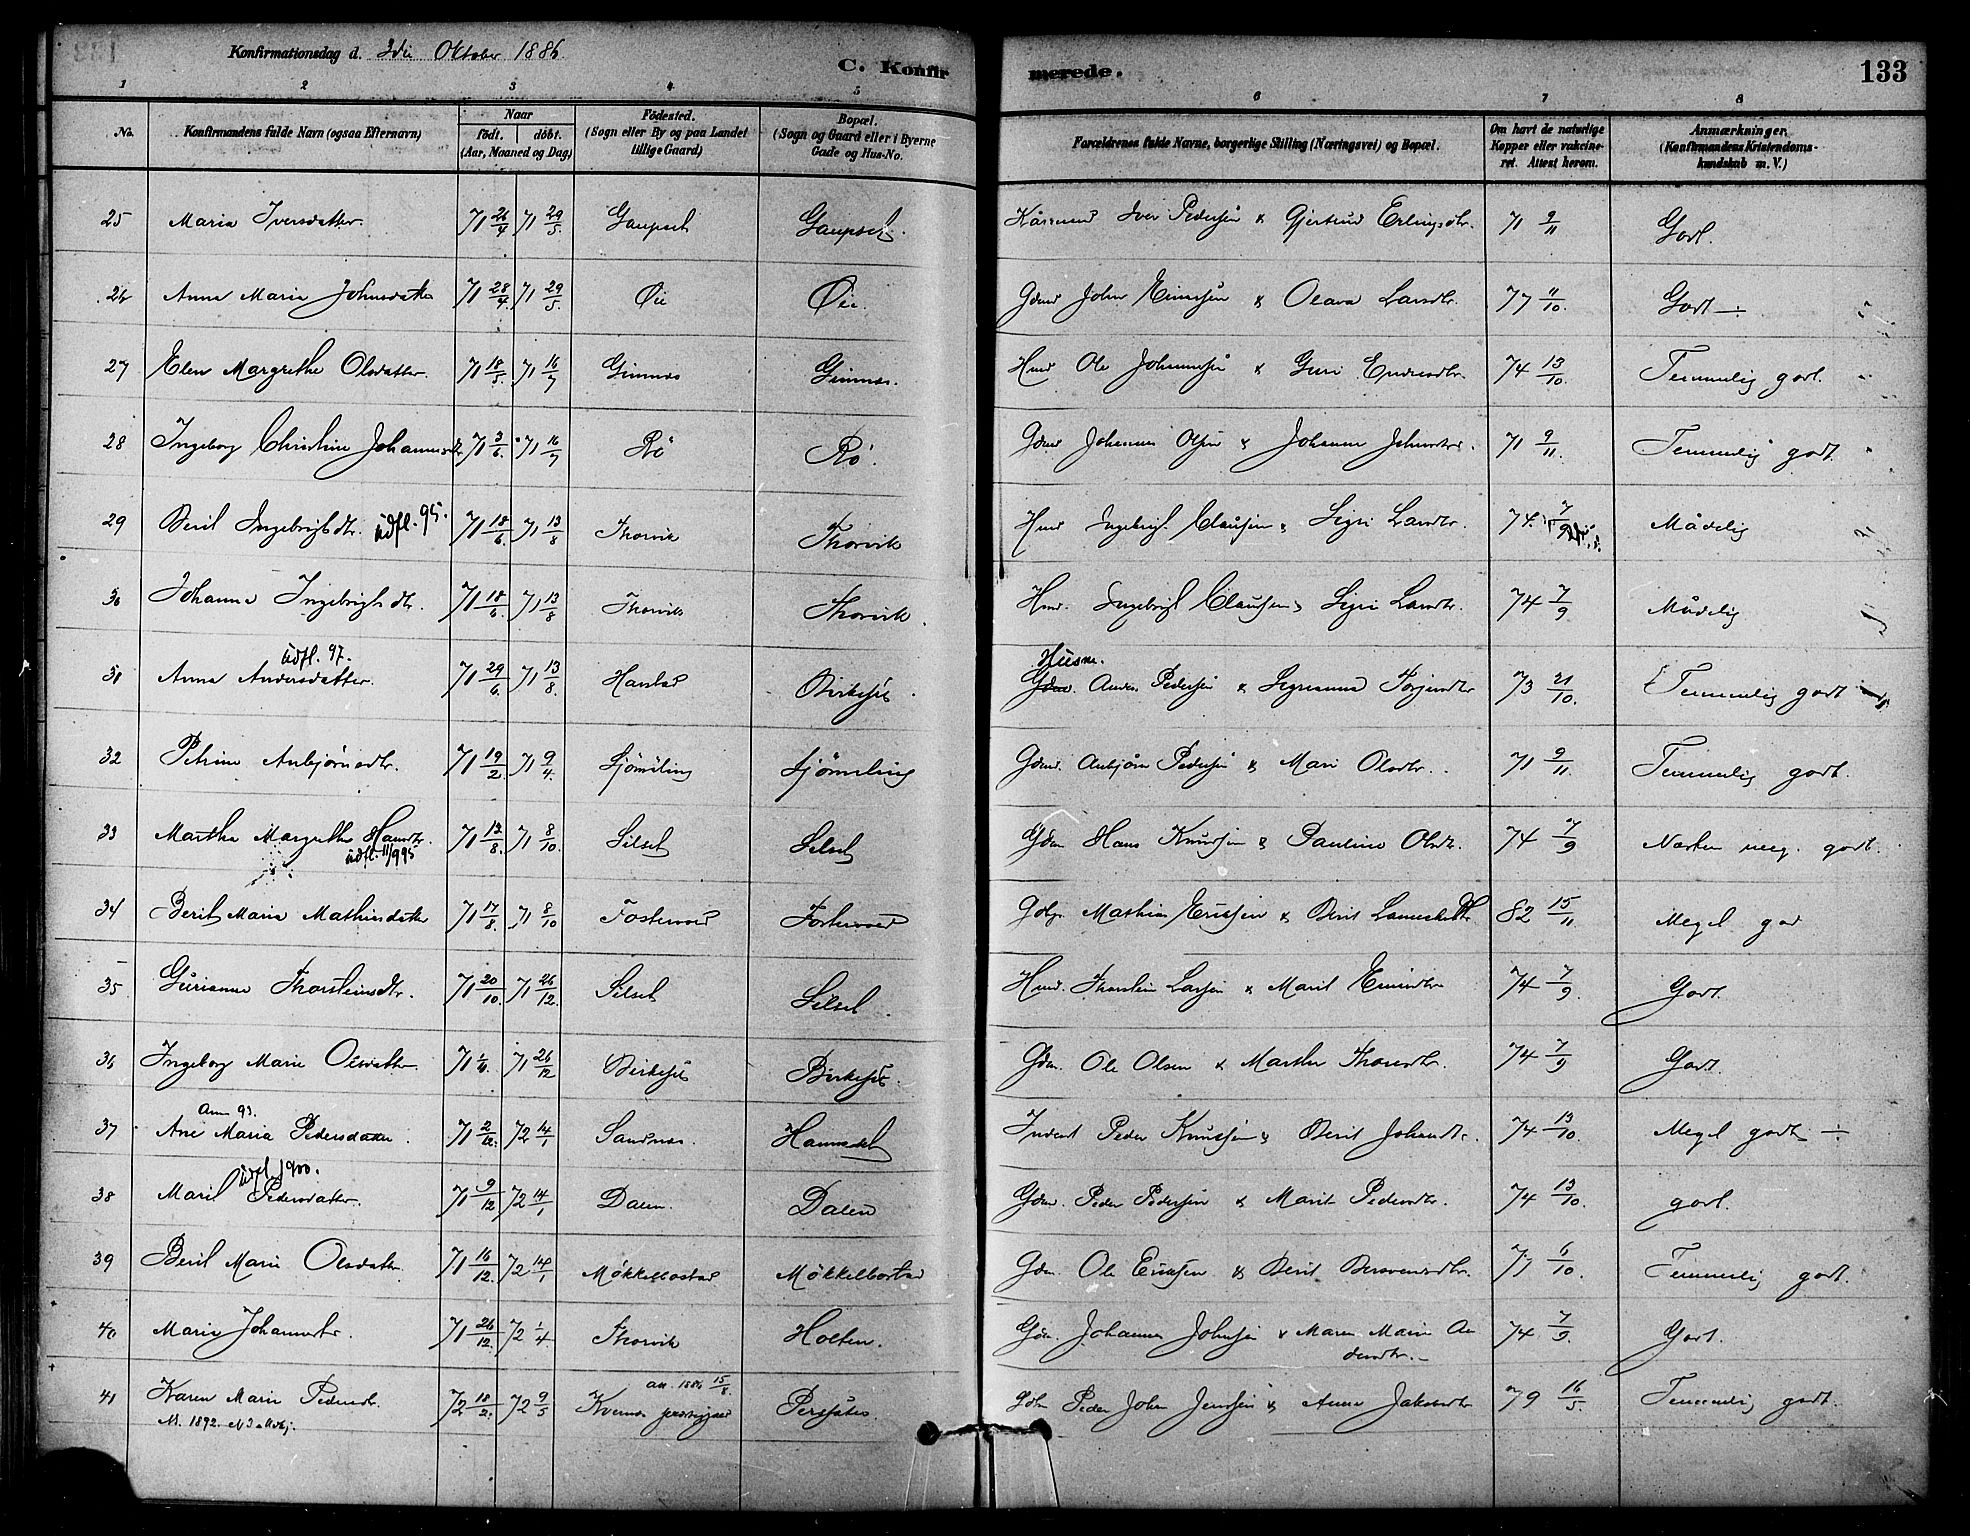 Konfirmationsdag d. 3die Oktober 1886. C. Konfirmerede. 133
1 2 3 4 5 6 7 8
No. Konfirmandens fulde Navn (ogsaa Efternavn) Naar født. døbt. (Aar, Maaned og Dag) Fødested. (Sogn eller By og paa Landet tillige Gaard) Bopæl. (Sogn og Gaard eller i Byerne Gade og Hus-No. Forældrenes fulde Navne, borgerlige Stilling (Næringsvei) og Bopæl. Om havt de naturlige Kopper eller vakcineret. Attest herom. Anmærkninger. (Konfirmandens Kristendomskundskab m. V.)
25 Maria Iversdatter. 71 26/4 71 29/5. Gaupset Gaupset. Iver Pedersen & Gjertrud Erlingsdtr. 71 9/11 Godt.
26 Anna Maria Johnsdatter 71 28/4. 71 29/5. Øie Øie. Gdmd John Einarsen & Olava Larsdtr. 77 11/10. Godt —
27 Elen Margrethe Olsdatter. 71 18/5. 71 16/7 Gimnæs Gimnæs. Hmd Ole Johannesen & Guri Endresdtr. 74 13/10. Temmelig godt.
28 Ingeborg Christine Johannesdtr 71 3/6. 71 16/7 Rø Rø. Gdmd Johannes Olsen & Johanna Johnsdtr. 71 9/11. Temmelig godt.
29 Berit Ingebrigtsdtr. udfl. 95. 71 18/6. 71 13/8 Thorvik Thorvik Hmd Ingebrigt Clausen & Sigri Larsdtr. 74. 7/9 Mådelig
30 Johanna Ingebrigtsdtr. 71 18/6. 71 13/8 Thorvik Thorvik. Hmd. Ingebrigt Clausen & Sigri Larsdtr. 74 7/9 Mådelig
udfl. 97. Husm.
31 Anna Andersdatter. 71 29/6. 71 13/8. Harstad Birkeset. Gdm. Anders Pedersen & 73 21/10. Temmelig godt
32 Petrine Anbjørnsdtr. 71 19/2 71 9/4. Sjømeling Sjømeling Gdmd. Anbjørn Pedersen & Mari Olsdtr. 71 9/11. Temmelig godt.
33 Martha Margrethe Hansdtr. 71 13/8. 71 8/10. Silset Silset Gdm Hans Knudsen & Pauline Olsdtr. 74 7/9 Næsten meg. godt.
udfl. 11/9 95
34 Berit Maria Mathiasdatter 71 17/8. 71 8/10 Fostervold Fostervold Mathias Erichsen & Berit 82 15/11 Meget god
35 Gurianna Thorsteinsdtr. 71 20/10. 71 26/12. Silset Silset. Hmd. Thorstein Larsen & Marit 74 7/9. Godt.
36 Ingeborg Marie Olsdatter 71 71 26/12 Birkeset Birkeset. Gdm. Ole Olsen & Martha Thoresdtr. 74 7/9 Godt.
Ann 93.
37 Ane Maria Pedersdatter. 71 2/12. 72 14/1 Sandnæs. Hannset Inderst Peder Knudsen & Berit Johansdtr. 74 13/10. Meget godt ÷
udfl 1900.
38 Marit Pedersdatter. 71 9/12 72 14/1 Dalen. Dalen Gdm. Peder Pedersen & Marit Pedersdtr. 74 13/10. godt.
39 Berit Marie Olsdatter 71 16/12. 72 14/1 Møkkelbostad Møkkelbostad Gdm. Ole Eriksen & Berit Bersvensdtr. 77 6/10. Temmelig godt.
40 Maria Johannesdtr. 71 26/12. 72 1/4 Thorvik Holten. Gdm. Johannes Johnsen & Maren Marie Andersdtr.— 74 7/9. Godt.
an. 1886 15/8.
41 Karen Marie Pedersdtr. 72 18/2. 72 9/5 Kvernæs præstegjæld Gdm Peder John Jensen & Anne Jakobsdtr 79 16/5. Temmelig godt.
1892.